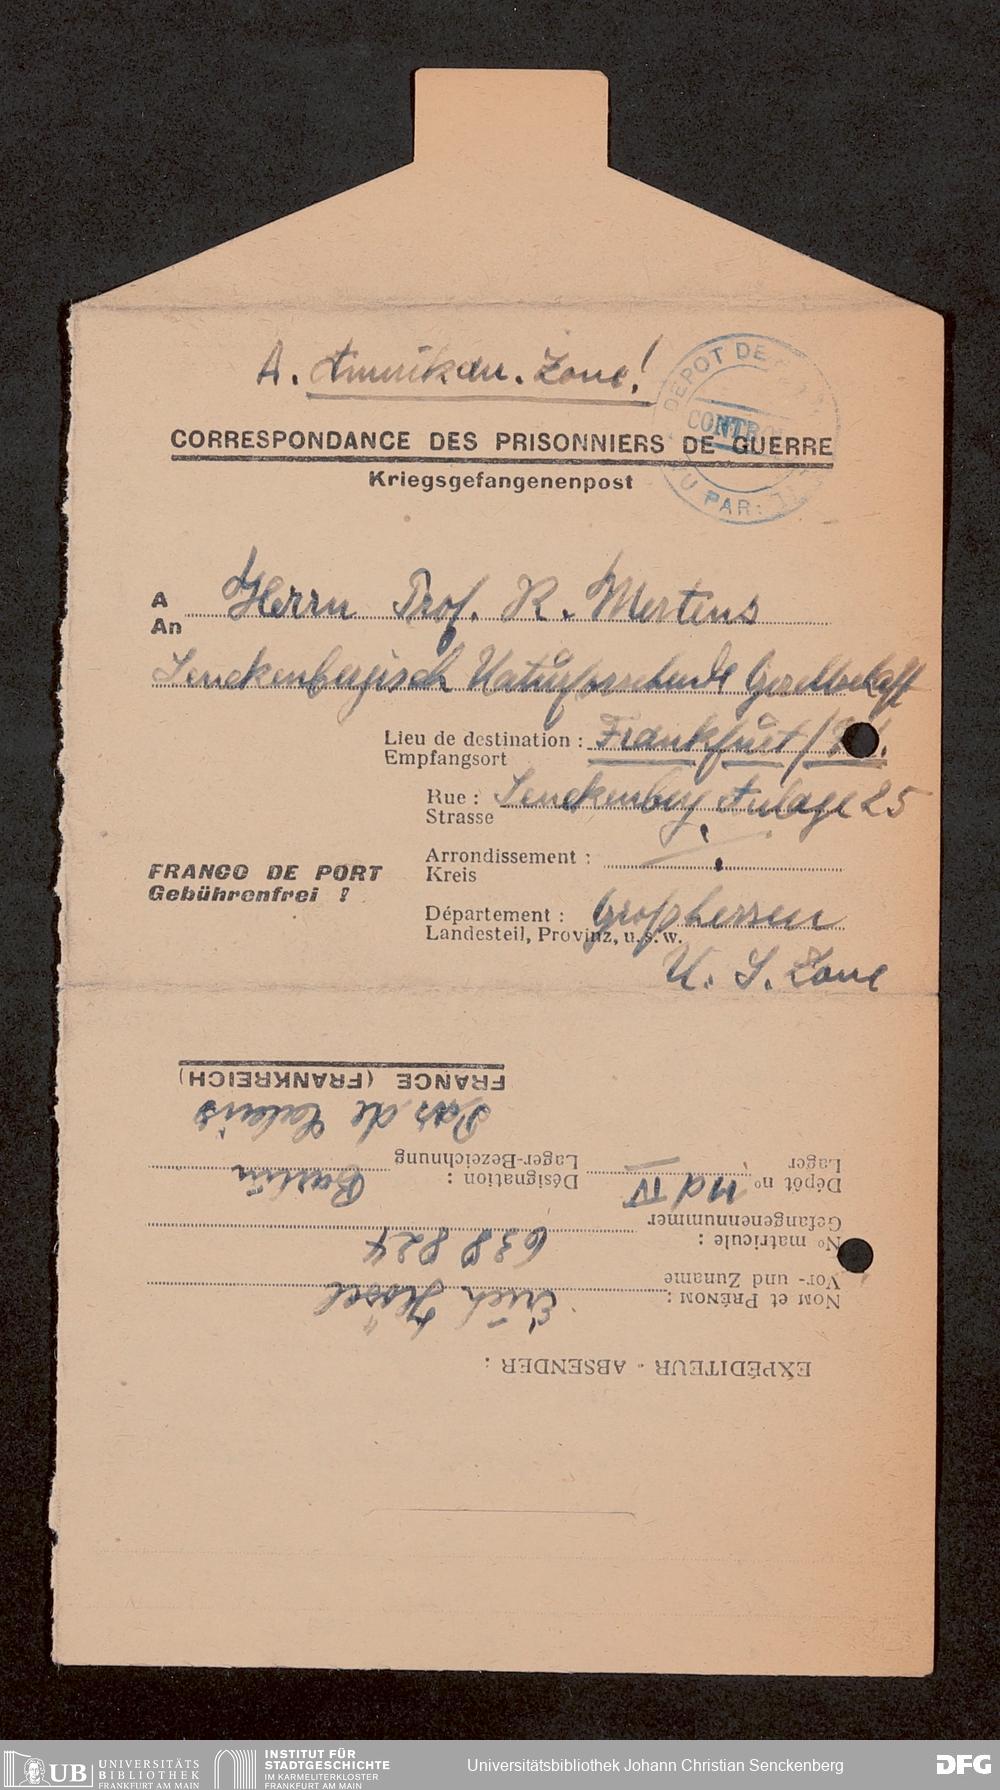 A. Amerikan. Zone!
DEPOT DE
CONTRO
PAR
CORRESPONDANCE DES PRISONNIERS DE GUERRE
Kriegsgefangenenpost
A Herrn Prof. R. Mertens
An
Senckenbergisch Naturforschende Gesellschaft
Lieu de destination : Frankfurt/M.
Empfangsort
Rue : Senckenberg Anlage 25
Strasse
Arrondissement :
Kreis
FRANCO DE PORT
Gebührenfrei !
Département : Großhessen
Landesteil, Provinz, u. s. w.
U. S. Zone
EXPÉDITEUR - ABSENDER :
NOM et PRÉNOM : Erich
Vor- und Zuname
No matricule : 638 824
Gefangennummer
Dépôt no IV Désignation : Barlin
Lager Lager-Bezeichnung
Pas de Calais
FRANCE (FRANKREICH)
UB UNIVERSITÄTS
BIBLIOTHEK
FRANKFURT AM MAIN
INSTITUT FÜR
STADTGESCHICHTE
IM KARMELITERKLOSTER
FRANKFURT AM MAIN
Universitätsbibliothek Johann Christian Senckenberg
DFG